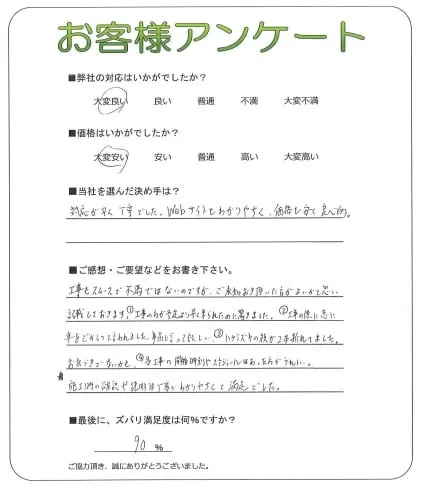 お客様アンケート
■弊社の対応はいかがでしたか?
大変良い 良い 普通 不満 大変不満
■価格はいかがでしたか?
大変安い 安い 普通 高い 大変高い
■当社を選んだ決め手は?
対応が早く丁寧でした。Webサイトもわかりやすく、価格も安く良心的。
■ご感想・ご要望などをお書き下さい。
工事もスムーズで不満ではないのですが、ご承知おき頂いた方がよいかと思い
記載しておきます。①工事の方が予定より早く来られたために驚きました。②工事の際に急に
車をどかしてと言われました。事前に言ってほしい。③トゲズヤの枝が2本折れてました。
④各工事の開始時刻やスケジュールはあった方がうれしい。
施工時の確認や説明は丁寧でわかりやすくて満足でした。
■最後に、ズバリ満足度は何%ですか?
90 %
ご協力頂き、誠にありがとうございました。